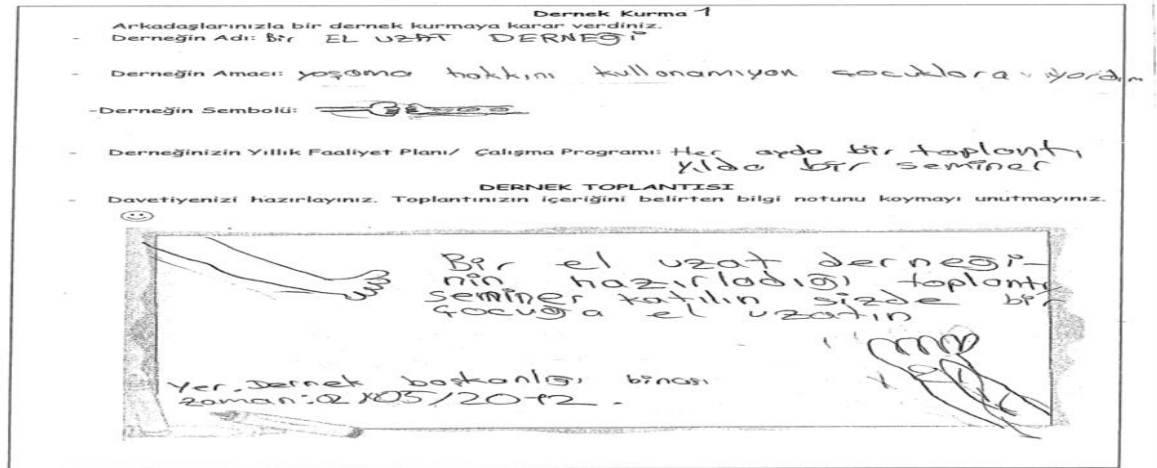 Dernek Kurma 1
Arkadaşlarınızla bir dernek kurmaya karar verdiniz.
- Derneğin Adı: Bir EL UZAT DERNEĞİ
- Derneğin Amacı: yaşama hakkını kullanamıyan çocuklara yardım
-Derneğin Sembolü:
- Derneğinizin Yıllık Faaliyet Planı/ Çalışma Programı: Her ayda bir toplantı
yılda bir seminer
DERNEK TOPLANTISI
- Davetiyenizi hazırlayınız. Toplantınızın içeriğini belirten bilgi notunu koymayı unutmayınız.
Bir el uzat derneği-
nin hazırladığı toplantı
seminer katılın sizde bir
çocuğa el uzatın
Yer. Dernek başkanlığı binası
zaman: 2012.